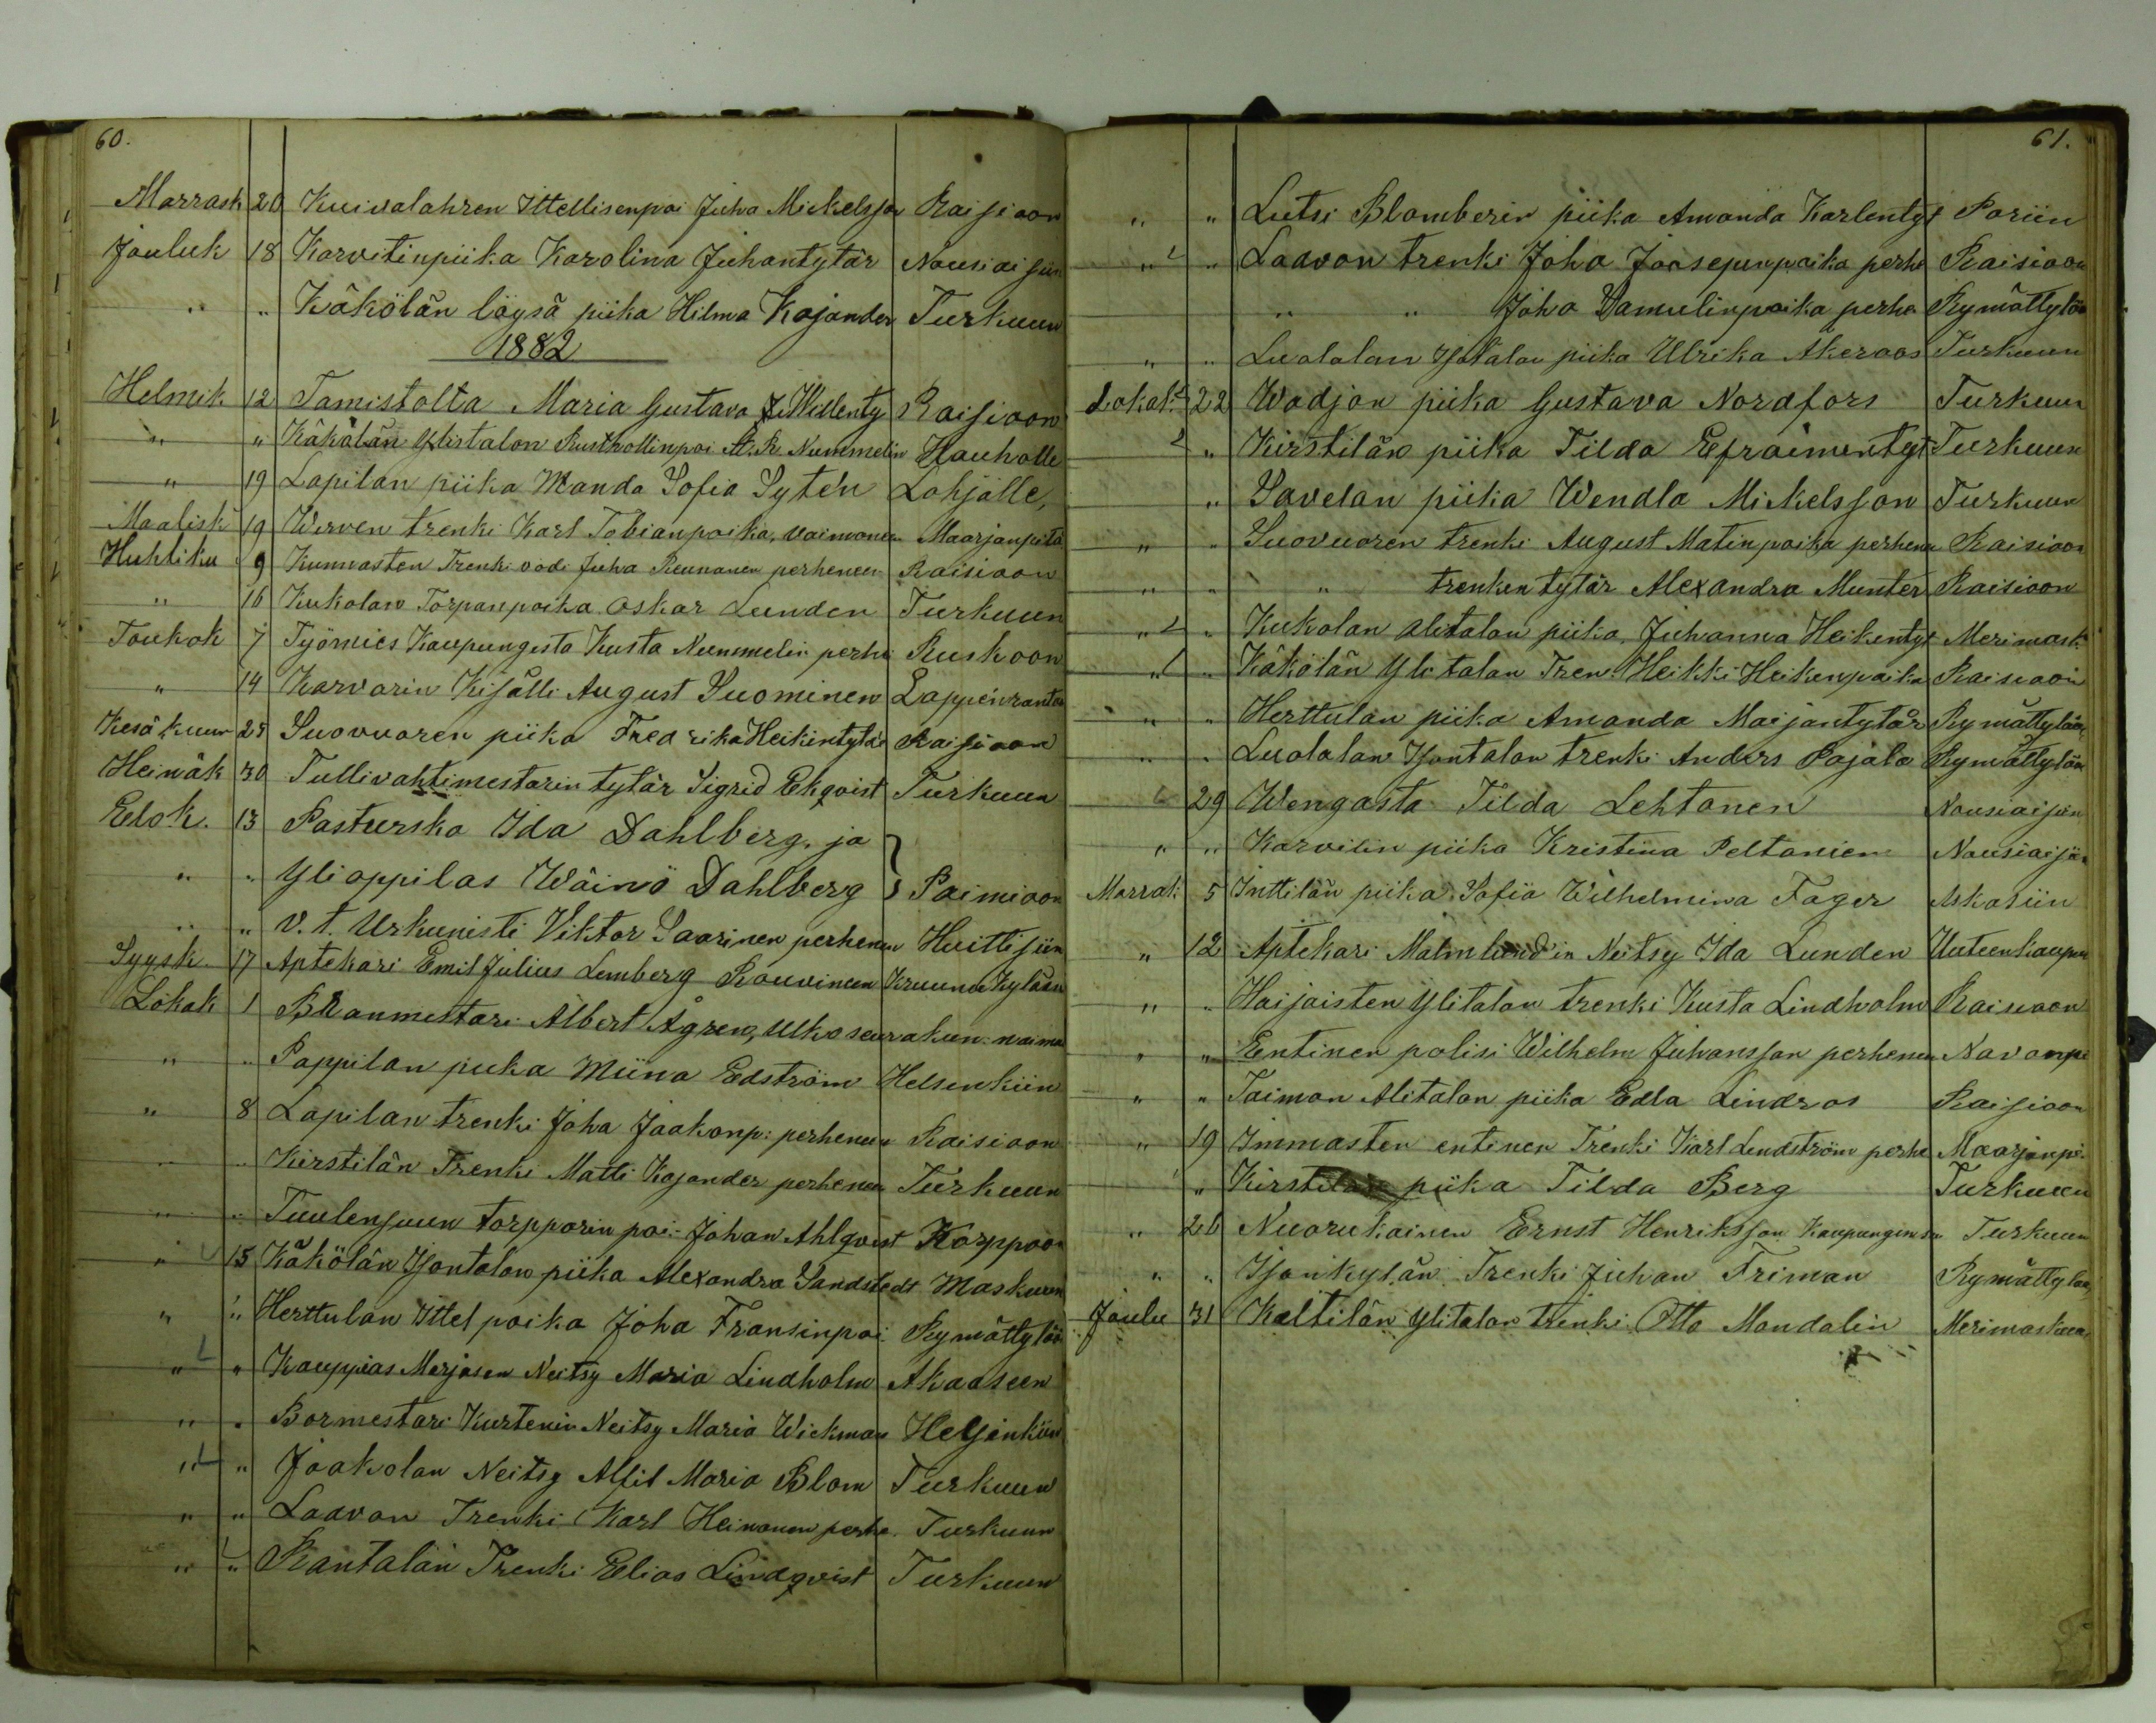 60.
Marrask 20 Kuivalahren Ittellisenpoi Juha Mickelsson Raisioon
Jouluk 18 Karvetinpiika Karolina Juhantytär Nousiaisiin
" " Käkölän löysä piika Hilma Kajander Turkuun
1882
Helmik 12 Tamistolta Maria Gustava Willenty Raisioon
" " Käkölän Ylistalon Rusthollinpoi A. R. Nummelin Hauholle
" 19 Lapilan piika Manda Sofia Syten Lohjalle,
Maalisk 19 Wirven trenki Karl Tobianpoika, vaimonen Maarjanpitä
Huhtiku 9 Kunnasten Trenki vodi Juha Reunanen perheneen Raisioon
" 16 Kukolan Torpanpoika Oskar Lunden Turkuun
Toukok 7 Työmies Kaupungista Kusta Nummelin perhe Ruskoon
" 14 Karvarin Kisälli August Suominen Lappenranta
Kesäkuun 25 Suovuoren piika Fredrika Heikintytär Raisioon
Heinäk 30 Tullivahtimestarin tytär Sigrid Ekqvist Turkuun
Elok. 13 Pasturska Ida Dahlberg, ja
" " Ylioppilas Wäinö Dahlberg } Paimioon
" " V. t. Urkunisti Viktor Saarinen perhenen Huittisiin
Syysk 17 Aptekari Emil Julius Lemberg Rouvineen Kruunu Kylään
Lokak 1 Albert Ågren, Ulko seurakun. naima
" " Pappilan piika Miina Edström Helsenkiin
" 8 Lapilan trenki Joha Jaakonp: perheneen Raisioon
" " Kirstilän Trenki Matti Kajander perheneen Turkuun
" " Tuulensuun torpparin poi. Johan Ahlqvist Korppoon
" 15 Käkölän Isontalon piika Alexandra Sandstedt Maskuun
" " Herttulan Ittel poika Joha Fransinpoi Rymättylän
" " Kauppias Merjasen Neitsy Maria Lindholm Akaaseen
" " Bormestari Kurtenin Neitsy Maria Wickman Helsinkiin
" " Jaakolan Neitsy Alfit Maria Blom Turkuun
" " Laavon Trenki Karl Heinonen perhe. Turkuun
" " Rantalan Trenki Elias Lindqvist Turkuun
61.
" " Lutsi Blomberin piika Amanda Karlentyt Poriin
" " Laavon trenki Joha Joosepinpoika perhe Raisioon
" " Joha Samulinpoika perhe Rymättylän
" " Luolalan Isotalon piika Ulrika Akeroos Turkuun
Lokak. 22 Wadjon piika Gustava Nordfors Turkuun
" Kirstilän piika Tilda Efraimintyt Turkuun
" Savelan piika Wendla Mickelsson Turkuun
" " Suovuoren trenki August Matinpoika perhenen Raisioon
" " " trenken tytär Alexandra Munter Raisioon
" " Kukolan alitalon piika, Juhanna Heikentyt Merimask.
" " Käkölän Ylitalon Tren. Heikki Heikenpoika Raisioon
" " Herttulan piika Amanda Maijantytär Rymättylän
" " Luolalan Isontalon trenki Anders Pajala Rymättylän
29 Wengasta Tilda Lehtonen Nousiaisiin
" " Karvetin piika Kristiina Peltonien Nousiaisiin
Marrak 5 Inttilän piika Sofia Wilhelmina Fager Askaisiin
" 12 Aptekari Malmlund'in Neitsy Ida Lunden Uuteenkaupun
" " Haijaisten Ylitalon trenki Kusta Lindholm Raisioon
" " Entinen polisi Wilhelm Juhansson perhenen Navonpi
" " Taimon Alitalon piika Edla Lindros Raisioon
" 19 Immasten entinen Trenki Karl Lendström perhe Maarjanpi.
" " Kirstilän piika Tilda Berg Turkuun
" 26 Nuorukainen Ernst Henriksson Kaupungin Turkuun
" " Isonkylän Trenki Juhan Friman Rymättylän
Joulu 31 Keltilän Ylitalon trenki Otto Mandalin Merimaskuu